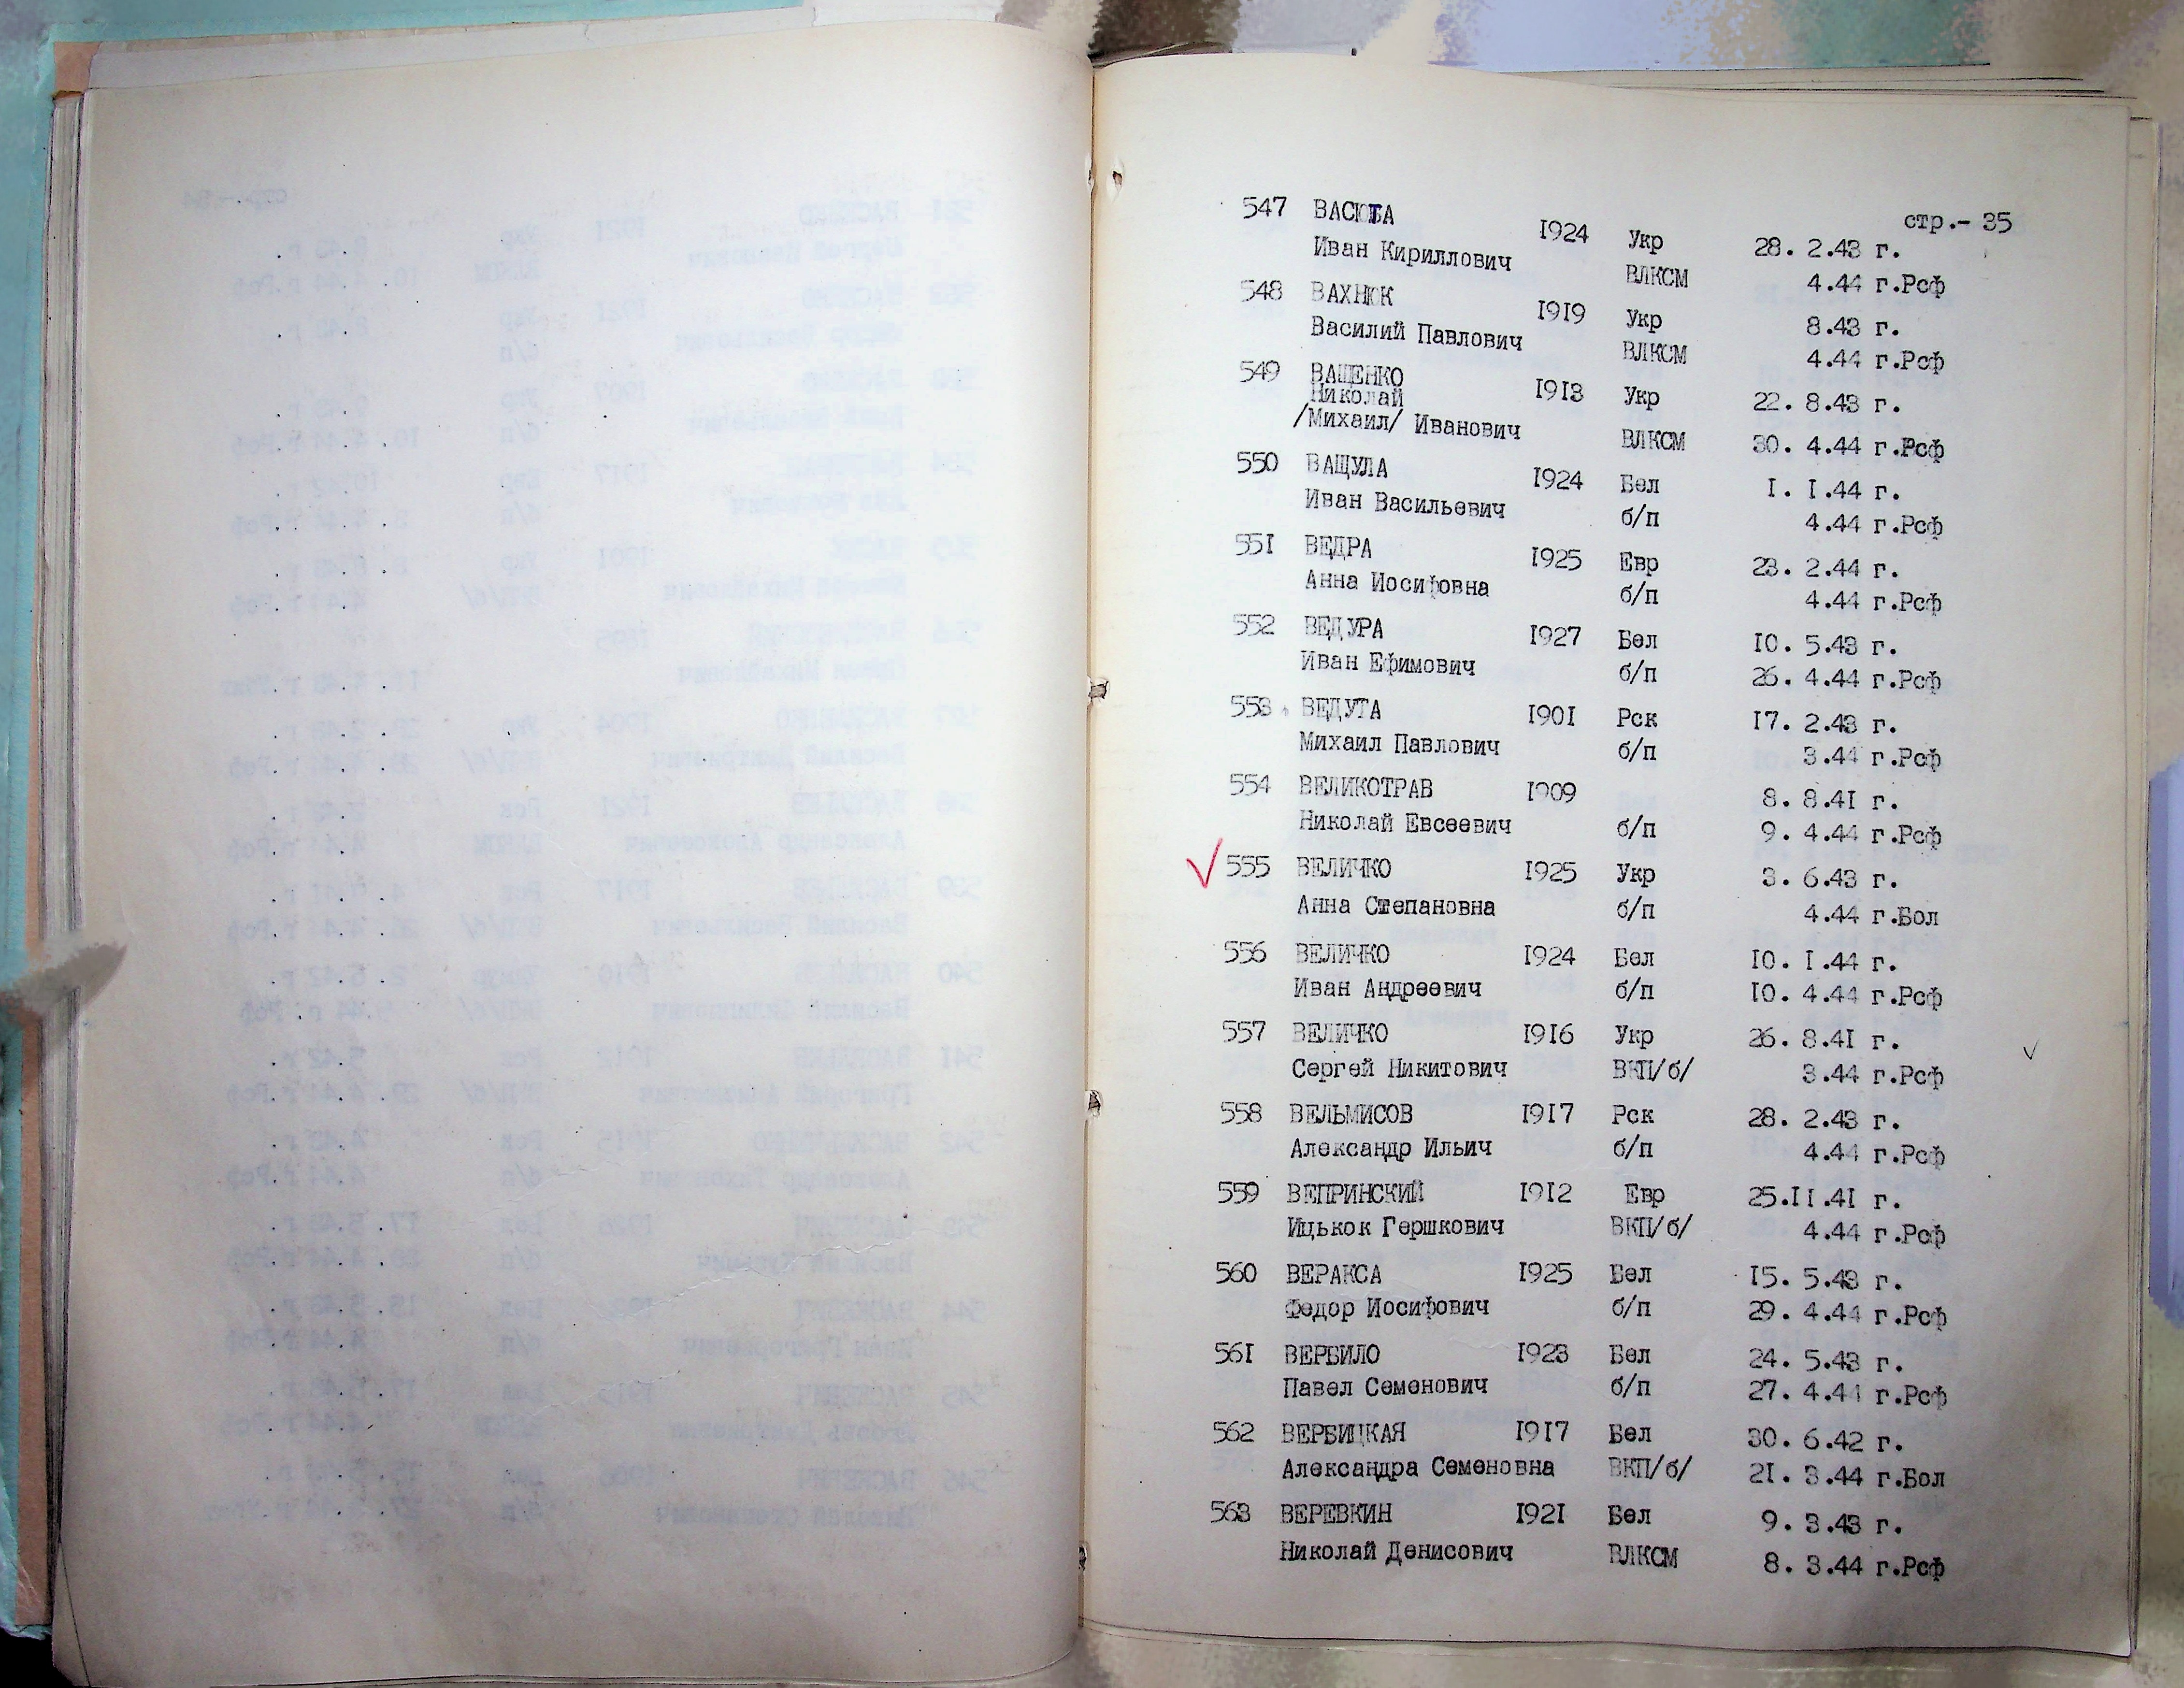 стр.- 35
547 ВАСЮТА 1924 Укр 28. 2.43 г.
Иван Кириллович ВЛКСМ 4.44 г.Рсф
548 ВАХНЮК 1919 Укр 8.43 г.
Василий Павлович ВЛКСМ 4.44 г.Рсф
549 ВАЩЕНКО 1913 Укр 22. 8.43 г.
Николай
/Михаил/ Иванович ВЛКСМ 30. 4.44 г.Рсф
550 ВАЩУЛА 1924 Бел I. I.44 г.
Иван Васильевич б/п 4.44 г.Рсф
551 ВЕДРА 1925 Евр 23. 2.44 г.
Анна Иосифовна б/п 4.44 г.Рсф
552 ВЕДУРА 1927 Бел 10. 5.43 г.
Иван Ефимович б/п 26. 4.44 г.Рсф
553 ВЕДУТА 1901 Рск 17. 2.43 г.
Михаил Павлович б/п 3.44 г.Рсф
554 ВЕЛИКОТРАВ 1909 8. 8.41 г.
Николай Евсеевич б/п 9. 4.44 г.Рсф
555 ВЕЛИЧКО 1925 Укр 3. 6.43 г.
Анна Степановна б/п 4.44 г.Бол
556 ВЕЛИЧКО 1924 Бел 10. I.44 г.
Иван Андреевич б/п 10. 4.44 г.Рсф
557 ВЕЛИЧКО 1916 Укр 26. 8.41 г.
Сергей Никитович ВКП/б/ 3.44 г.Рсф
558 ВЕЛЬМИСОВ 1917 Рск 28. 2.43 г.
Александр Ильич б/п 4.44 г.Рсф
559 ВЕПРИНСКИЙ 1912 Евр 25.11.41 г.
Ицькок Гершкович ВКП/б/ 4.44 г.Рсф
560 ВЕРАКСА 1925 Бел 15. 5.43 г.
Федор Иосифович б/п 29. 4.44 г.Рсф
561 ВЕРБИЛО 1923 Бел 24. 5.43 г.
Павел Семенович б/п 27. 4.44 г.Рсф
562 ВЕРБИЦКАЯ 1917 Бел 30. 6.42 г.
Александра Семеновна ВКП/б/ 21. 3.44 г.Бол
563 ВЕРЕВКИН 1921 Бел 9. 3.43 г.
Николай Денисович ВЛКСМ 8. 3.44 г.Рсф